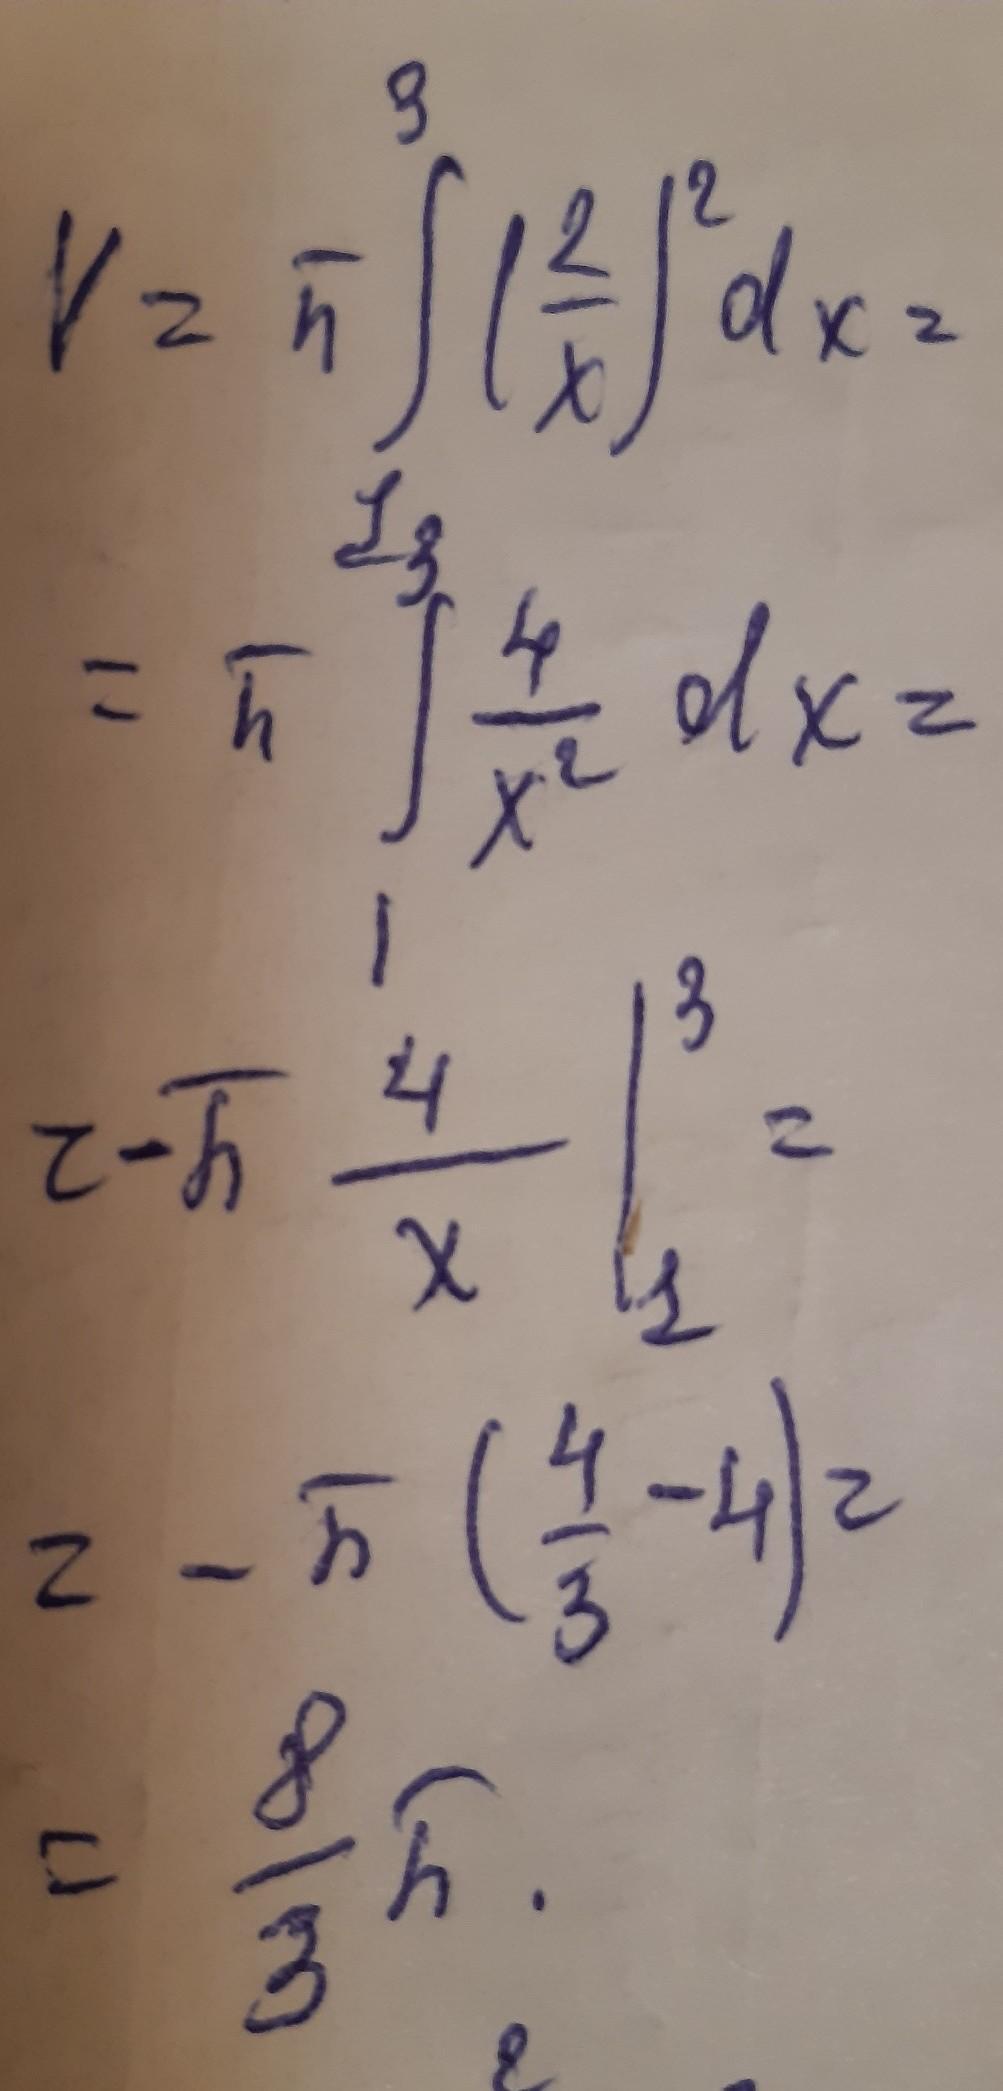 V = π ∫₁³ (2/x)² dx =
= π ∫₁³ 4/x² dx =
= -π 4/x |₁³ =
= - π (4/3 - 4) =
= 8/3 π.